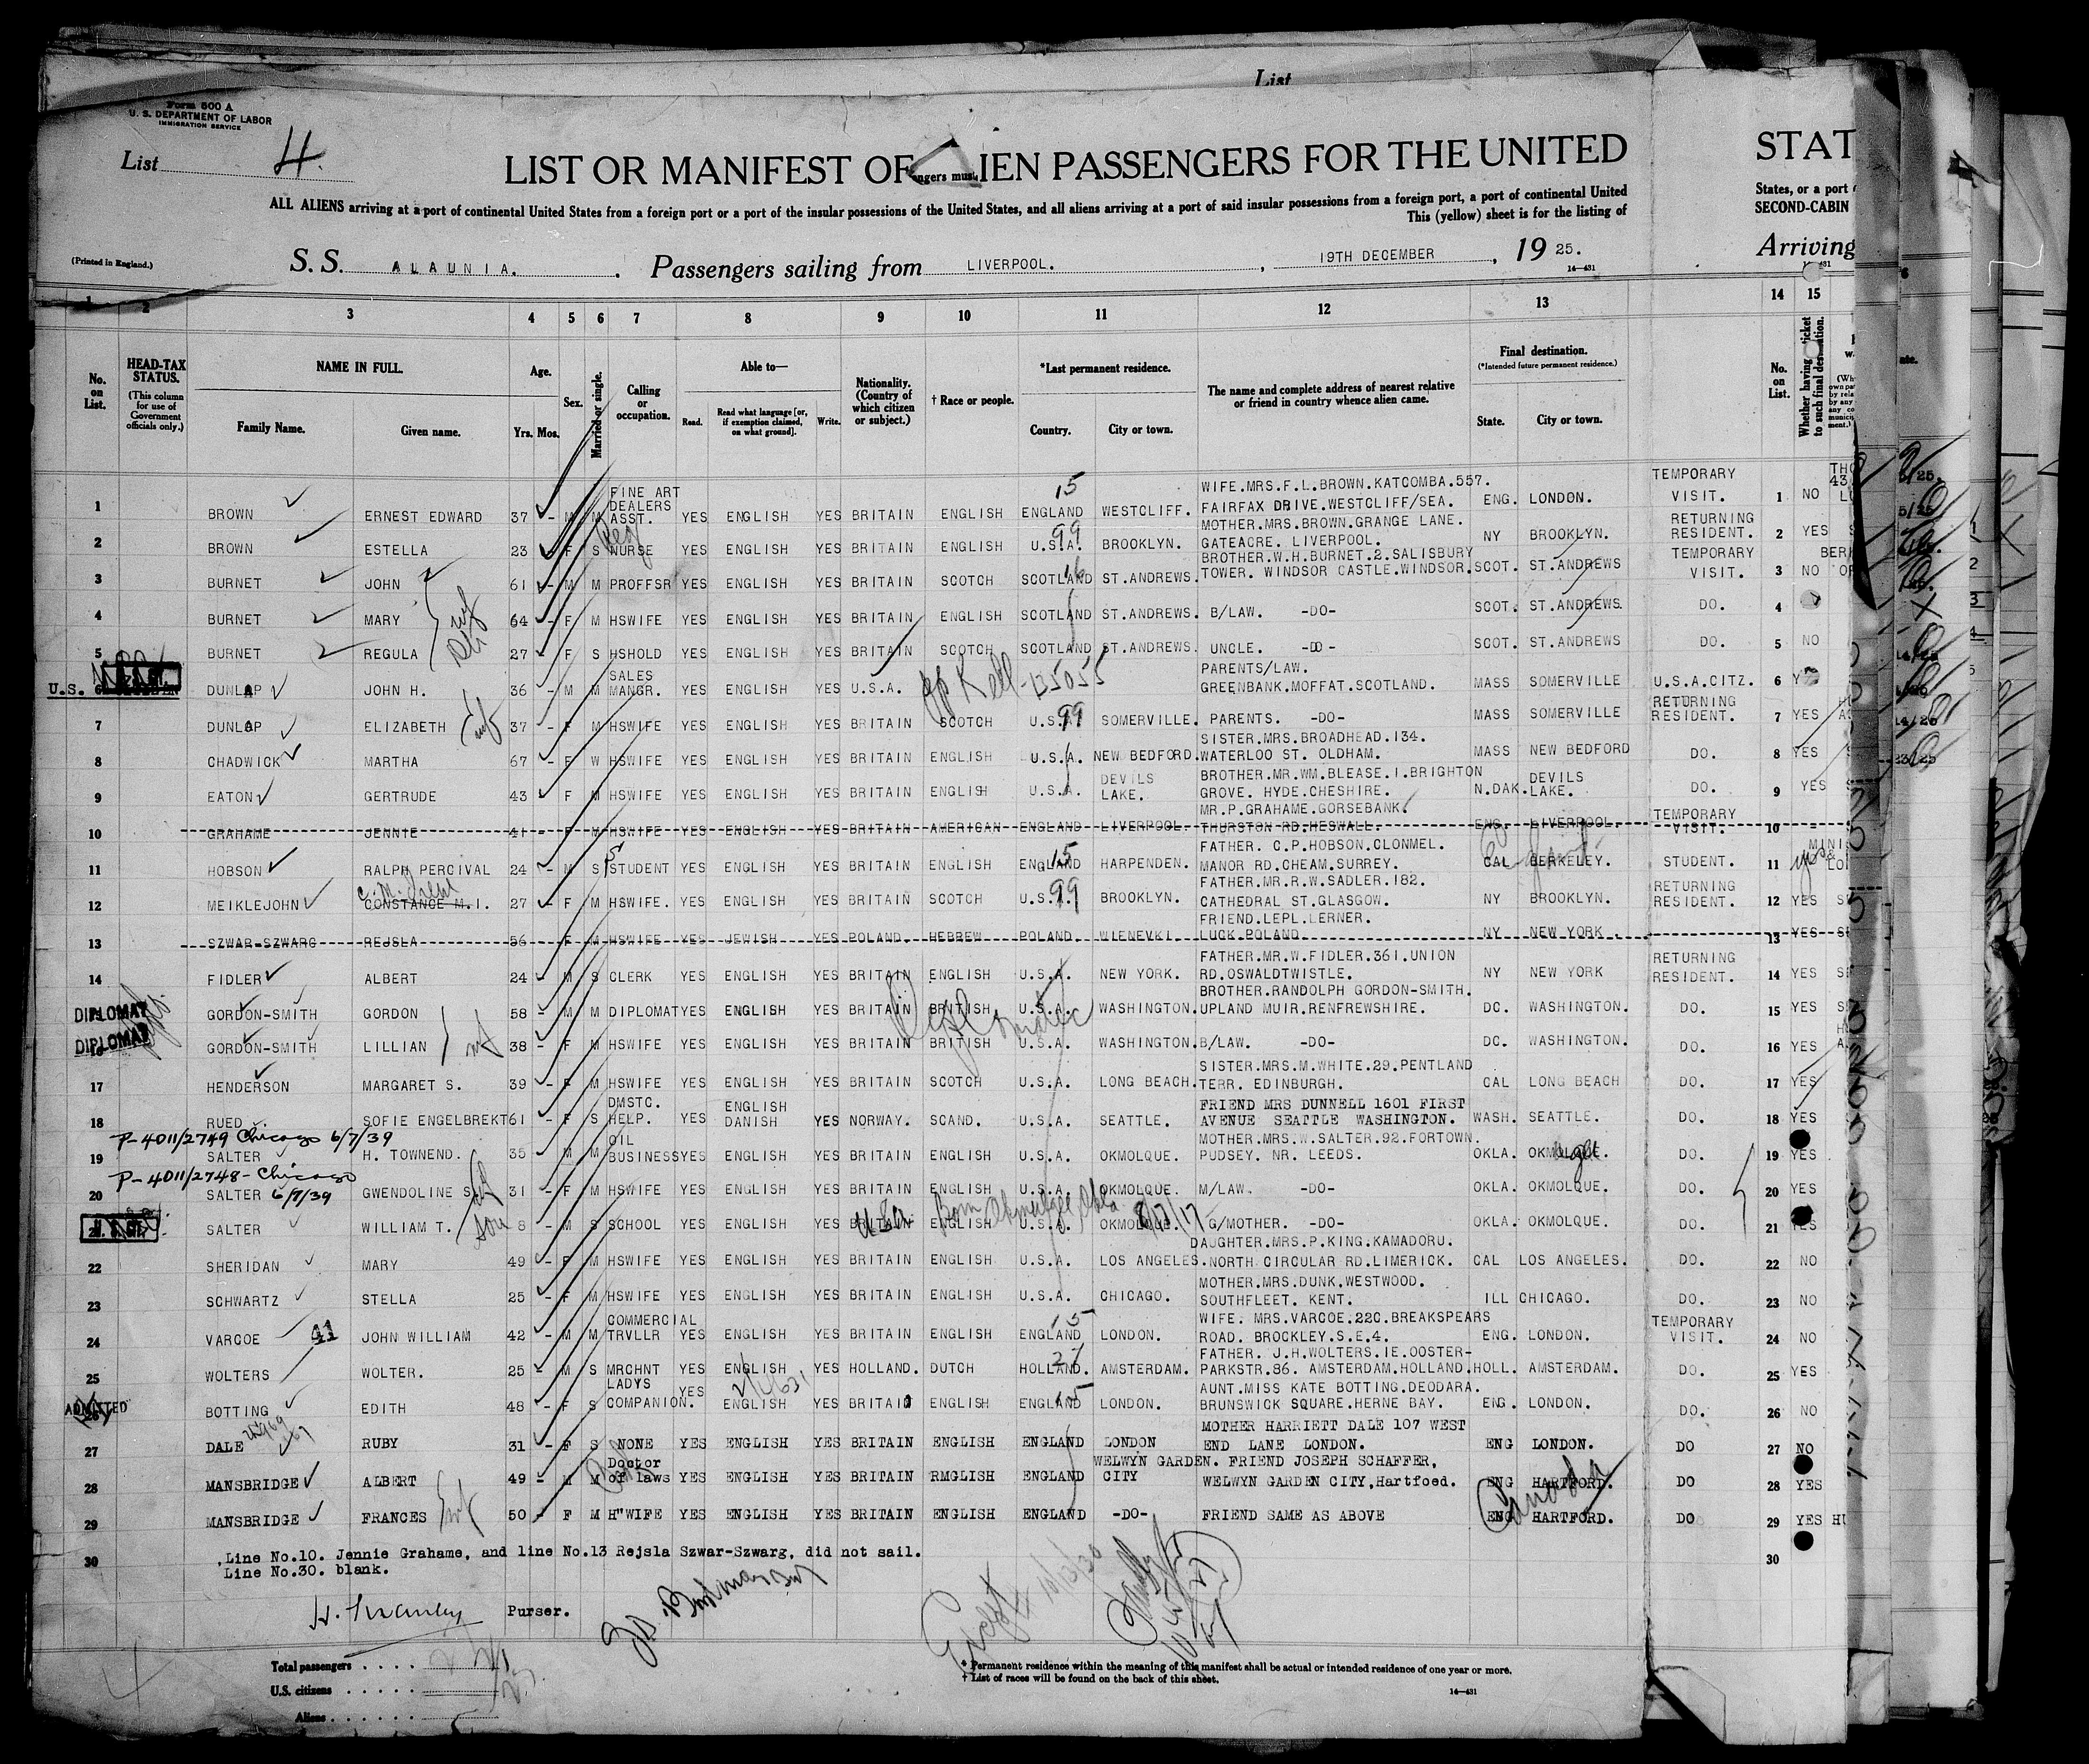 List
Form 500 A
U. S. DEPARTMENT OF LABOR
IMMIGRATION SERVICE
List 4.
LIST OR MANIFEST OF IEN PASSENGERS FOR THE UNITED STAT
angers must
ALL ALIENS arriving at a port of continental United States from a foreign port or a port of the insular possessions of the United States, and all aliens arriving at a port of said insular possessions from a foreign port, a port of continental United States, or a port
This (yellow) sheet is for the listing of SECOND-CABIN
(Printed in England.)
S. S. ALAUNIA. Passengers sailing from LIVERPOOL. , 19TH DECEMBER , 19 25. Arriving
14—431
1 2 3 4 5 6 7 8 9 10 11 12 13 14 15
No. on List.
HEAD-TAX STATUS. (This column for use of Government officials only.)
NAME IN FULL. Family Name. Given name.
Age. Yrs. Mos.
Sex.
Married or single.
Calling or occupation.
Able to— Read. Read what language [or, if exemption claimed, on what ground]. Write.
Nationality. (Country of which citizen or subject.)
† Race or people.
*Last permanent residence. Country. City or town.
The name and complete address of nearest relative or friend in country whence alien came.
Final destination. (*Intended future permanent residence.) State. City or town.
No. on List.
Whether having ticket to such final destination.
1 BROWN ERNEST EDWARD 37 - M M FINE ART DEALERS ASST. YES ENGLISH YES BRITAIN ENGLISH ENGLAND 15 WESTCLIFF. WIFE.MRS.F.L.BROWN.KATCOMBA.557. FAIRFAX DRIVE.WESTCLIFF/SEA. ENG. LONDON. TEMPORARY VISIT. 1 NO
2 BROWN ESTELLA 23 - F S NURSE YES ENGLISH YES BRITAIN ENGLISH U.S.A. 99 BROOKLYN. MOTHER.MRS.BROWN.GRANGE LANE. GATEACRE. LIVERPOOL. NY BROOKLYN. RETURNING RESIDENT. 2 YES
3 BURNET JOHN 61 - M M PROFFSR YES ENGLISH YES BRITAIN SCOTCH SCOTLAND 16 ST.ANDREWS. BROTHER.W.H.BURNET.2.SALISBURY TOWER. WINDSOR CASTLE.WINDSOR. SCOT. ST.ANDREWS TEMPORARY VISIT. 3 NO
4 BURNET MARY wf 64 - F M HSWIFE YES ENGLISH YES BRITAIN ENGLISH SCOTLAND ST.ANDREWS. B/LAW. -DO- SCOT. ST.ANDREWS. DO. 4
5 BURNET REGULA 27 - F S HSHOLD YES ENGLISH YES BRITAIN SCOTCH SCOTLAND ST.ANDREWS. UNCLE. -DO- SCOT. ST.ANDREWS DO. 5 NO
U.S. 6 DUNLAP JOHN H. 36 - M M SALES MANGR. YES ENGLISH YES U.S.A. 135055 PARENTS/LAW. GREENBANK.MOFFAT.SCOTLAND. MASS SOMERVILLE U.S.A.CITZ. 6
7 DUNLAP ELIZABETH wf 37 - F M HSWIFE YES ENGLISH YES BRITAIN SCOTCH U.S.A 99 SOMERVILLE. PARENTS. -DO- MASS SOMERVILLE RETURNING RESIDENT. 7 YES
8 CHADWICK MARTHA 67 - F W HSWIFE YES ENGLISH YES BRITAIN ENGLISH U.S.A. NEW BEDFORD. SISTER.MRS.BROADHEAD.134. WATERLOO ST. OLDHAM. MASS NEW BEDFORD DO. 8 YES
9 EATON GERTRUDE 43 - F M HSWIFE YES ENGLISH YES BRITAIN ENGLISH U.S.A. DEVILS LAKE. BROTHER.MR.WM.BLEASE.1.BRIGHTON GROVE. HYDE.CHESHIRE. N.DAK. DEVILS LAKE. DO. 9 YES
10 GRAHAME JENNIE 41 - F M HSWIFE YES ENGLISH YES BRITAIN AMERICAN ENGLAND LIVERPOOL. MR.P.GRAHAME.GORSEBANK. THURSTON RD.HESWALL. ENG. LIVERPOOL. TEMPORARY VISIT. 10 -
11 HOBSON RALPH PERCIVAL 24 - M S STUDENT YES ENGLISH YES BRITAIN ENGLISH ENGLAND 15 HARPENDEN. FATHER. C.P.HOBSON.CLONMEL. MANOR RD.CHEAM.SURREY. CAL BERKELEY. STUDENT. 11 yes
12 MEIKLEJOHN CONSTANCE M.I. 27 - F M HSWIFE. YES ENGLISH YES BRITAIN SCOTCH U.S.A. 99 BROOKLYN. FATHER.MR.R.W.SADLER.182. CATHEDRAL ST.GLASGOW. NY BROOKLYN. RETURNING RESIDENT. 12 YES
13 SZWAR-SZWARG REJSLA 56 F M HSWIFE YES JEWISH YES POLAND. HEBREW POLAND. WLENEVKI. FRIEND.LEPL.LERNER. LUCK.POLAND NY NEW YORK. 13 YES
14 FIDLER ALBERT 24 - M S CLERK YES ENGLISH YES BRITAIN ENGLISH U.S.A. NEW YORK. FATHER.MR.W.FIDLER.361.UNION RD.OSWALDTWISTLE. NY NEW YORK RETURNING RESIDENT. 14 YES
DIPLOMAT GORDON-SMITH GORDON 58 - M M DIPLOMAT YES ENGLISH YES BRITAIN BRITISH U.S.A. WASHINGTON. BROTHER.RANDOLPH GORDON-SMITH. UPLAND MUIR.RENFREWSHIRE. DC. WASHINGTON. DO. 15 YES
DIPLOMAT 16 GORDON-SMITH LILLIAN wf 38 - F M HSWIFE YES ENGLISH YES BRITAIN BRITISH U.S.A. WASHINGTON. B/LAW. -DO- DC. WASHINGTON. DO. 16 YES
Diplomatic
17 HENDERSON MARGARET S. 39 - F M HSWIFE YES ENGLISH YES BRITAIN SCOTCH U.S.A. LONG BEACH. SISTER.MRS.M.WHITE.29.PENTLAND TERR. EDINBURGH. CAL LONG BEACH DO. 17 YES
18 RUED SOFIE ENGELBREKT 61 - F S DMSTC. HELP. YES ENGLISH DANISH YES NORWAY. SCAND. U.S.A. SEATTLE. FRIEND MRS DUNNELL 1601 FIRST AVENUE SEATTLE WASHINGTON. WASH. SEATTLE. DO. 18 YES
P-4011/2749 Chicago 6/7/39
19 SALTER H. TOWNEND. 35 - M M OIL BUSINESS YES ENGLISH YES BRITAIN ENGLISH U.S.A. OKMOLQUE. MOTHER.MRS.W.SALTER.92.FORTOWN. PUDSEY. NR. LEEDS. OKLA. DO. 19 YES
P-4011/2748-Chicago 6/7/39
20 SALTER GWENDOLINE S. wf 31 - F M HSWIFE YES ENGLISH YES BRITAIN ENGLISH U.S.A. OKMOLQUE. M/LAW. -DO- OKLA. OKMOLQUE. DO. 20 YES
21 SALTER WILLIAM T. son 8 - M S SCHOOL YES ENGLISH YES BRITAIN USA ENGLISH Born Okla U.S.A. OKMOLQUE. G/MOTHER. -DO- OKLA. OKMOLQUE. DO. 21 YES
22 SHERIDAN MARY 49 - F M HSWIFE YES ENGLISH YES BRITAIN ENGLISH U.S.A. LOS ANGELES. DAUGHTER.MRS.P.KING.KAMADORU. NORTH CIRCULAR RD.LIMERICK. CAL LOS ANGELES. DO. 22 NO
23 SCHWARTZ STELLA 25 - F M HSWIFE YES ENGLISH YES BRITAIN ENGLISH U.S.A. CHICAGO. MOTHER.MRS.DUNK.WESTWOOD. SOUTHFLEET. KENT. ILL CHICAGO. DO. 23 NO
24 VARCOE 41 JOHN WILLIAM 42 - M M COMMERCIAL TRVLLR YES ENGLISH YES BRITAIN ENGLISH ENGLAND 15 LONDON. WIFE. MRS.VARCOE.22C.BREAKSPEARS ROAD. BROCKLEY.S.E.4. ENG. LONDON. TEMPORARY VISIT. 24 NO
25 WOLTERS WOLTER. 25 - M S MRCHNT YES ENGLISH YES HOLLAND. DUTCH HOLLAND. 27 AMSTERDAM. FATHER. J.H.WOLTERS.IE.OOSTER- PARKSTR.86. AMSTERDAM.HOLLAND. HOLL. AMSTERDAM. DO. 25 YES
ADMITTED 26 BOTTING EDITH 48 - F S LADYS COMPANION. YES ENGLISH YES BRITAI ENGLISH ENGLAND 15 LONDON. AUNT.MISS KATE BOTTING.DEODARA. BRUNSWICK SQUARE.HERNE BAY. ENG. LONDON. DO. 26 NO
27 DALE RUBY 31 - F S NONE YES ENGLISH YES BRITAIN ENGLISH ENGLAND LONDON MOTHER HARRIETT DALE 107 WEST END LANE LONDON. ENG LONDON. DO 27 NO
28 MANSBRIDGE ALBERT 49 - M M Doctor of laws YES ENGLISH YES BRITAIN RMGLISH ENGLAND WELWYN GARDEN. CITY FRIEND JOSEPH SCHAFFER, WELWYN GARDEN CITY,Hartfoed. ENG HARTFORD. DO 28 YES
29 MANSBRIDGE FRANCES wf 50 - F M H"WIFE YES ENGLISH YES BRITAIN ENGLISH ENGLAND -DO- FRIEND SAME AS ABOVE ENG HARTFORD. Canada DO 29 YES
30 Line No.10. Jennie Grahame, and line No.13 Rejsla Szwar-Szwarg, did not sail. 30
Line No.30. blank.
Purser.
Total passengers . . . .
U.S. citizens . . . . .
Aliens . . . . . .
* Permanent residence within the meaning of this manifest shall be actual or intended residence of one year or more.
† List of races will be found on the back of this sheet.
14—431